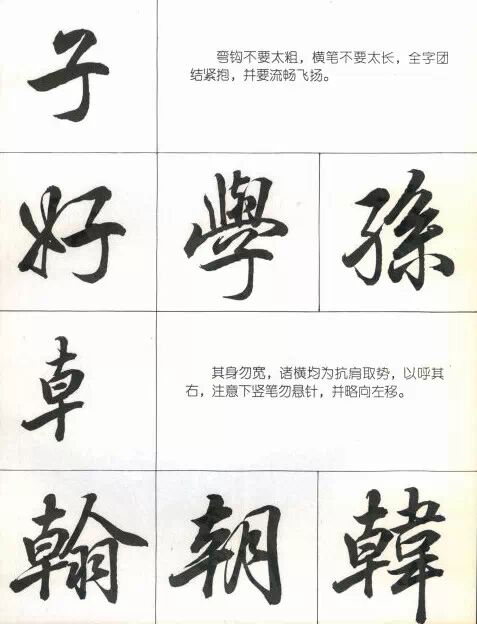 子
弯钩不要太粗，横笔不要太长，全字团
结紧抱，并要流畅飞扬。
好 學 孫
卓
其身勿宽，诸横均为抗肩取势，以呼其
右，注意下竖笔勿悬针，并略向左移。
翰 朝 韓